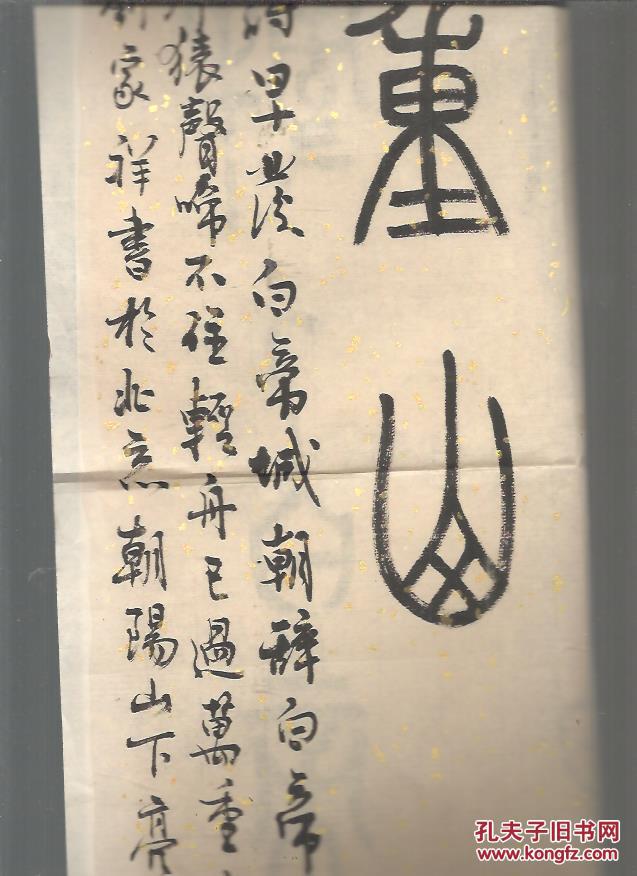 重山
詩早發白帝城朝辭白帝
猿聲啼不住輕舟已過萬重
家祥書於北京朝陽山下亮
孔夫子旧书网
www.kongfz.com